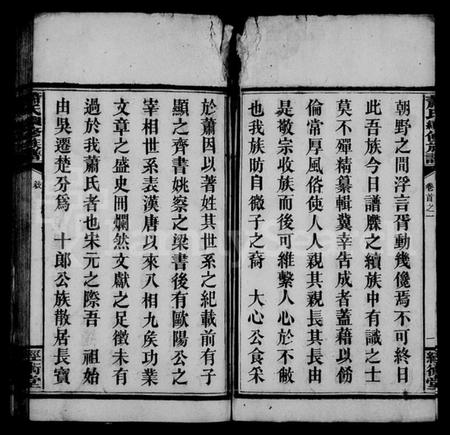 蕭氏續修族譜
卷首之一
一
經術堂
朝野之間浮言胥動幾儳焉不可終日
此吾族今日譜牒之續族中有識之士
莫不殫精纂輯冀幸告成者蓋藉以飭
倫常厚風俗使人人親其親長其長由
是敬宗收族而後可維繫人心於不敝
也我族昉自微子之裔 大心公食采
於蕭因以著姓其世系之紀載前有子
顯之齊書姚察之梁書後有歐陽公之
宰相世系表漢唐以來八相九矦功業
文章之盛史冊爛然文獻之足徵未有
過於我蕭氏者也宋元之際吾 祖始
由吳遷楚分爲 十郎公族散居長寶
蕭氏續修族譜
敘
經術堂